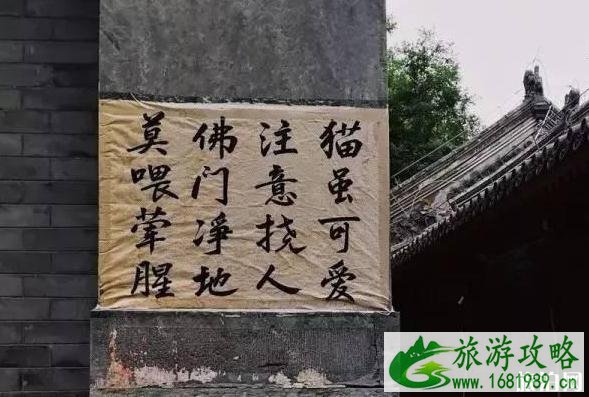 猫虽可爱
注意挠人
佛门净地
莫喂荤腥
旅游攻略
www.1681989.cn